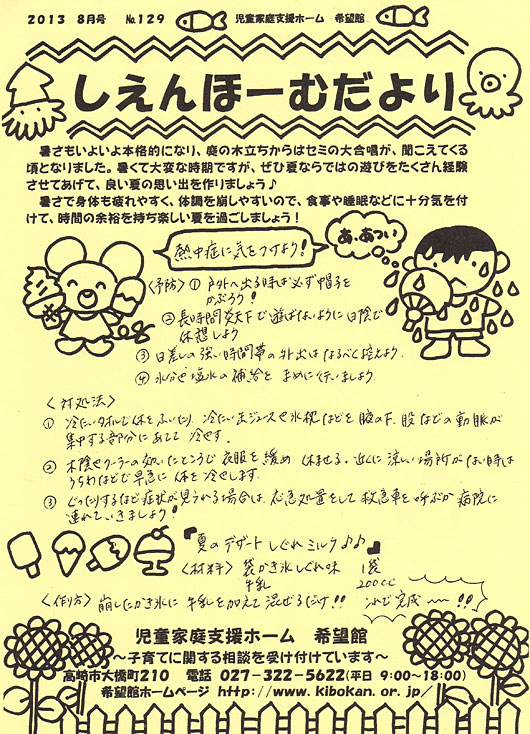 2013 8月号 No.129 児童家庭支援ホーム 希望館
しえんほーむだより
暑さもいよいよ本格的になり、庭の木立ちからはセミの大合唱が、聞こえてくる
頃となりました。暑くて大変な時期ですが、ぜひ夏ならではの遊びをたくさん経験
させてあげて、良い夏の思い出を作りましょう♪
暑さで身体も疲れやすく、体調を崩しやすいので、食事や睡眠などに十分気を付
けて、時間の余裕を持ち楽しい夏を過ごしましょう！
熱中症に気をつけよう！
あ、あつい
〈予防〉① 戸外へ出る時は必ず帽子を
かぶろう！
② 長時間炎天下で遊ばないように日陰で
休憩しよう
③ 日差しの強い時間帯の外出はなるべく控えよう
④ 水分や塩分の補給を まめに行いましょう
〈対処法〉
① 冷たいタオルで体をふいたり、冷たい缶ジュースや氷枕などを腋の下、股などの動脈が
集中する部分にあてて 冷やす。
② 木陰やクーラーの効いたところで 衣服を緩め 休ませる。近くに 涼しい 場所がない時は
うちわなどで早急に 体を冷やします。
③ ぐったりするなど症状が見られる場合は、応急処置をして 救急車を呼ぶか 病院に
連れていきましょう！
『夏のデザート しぐれミルク♪♪』
〈材料〉 袋かき氷しぐれ味 1袋
牛乳 200cc
〈作り方〉 崩したかき氷に 牛乳を加えて 混ぜるだけ!! これで完成〜!!
児童家庭支援ホーム 希望館
〜子育てに関する相談を受け付けています〜
高崎市大橋町210 電話 027-322-5622(平日 9:00〜18:00)
希望館ホームページ http://www.kibokan.or.jp/